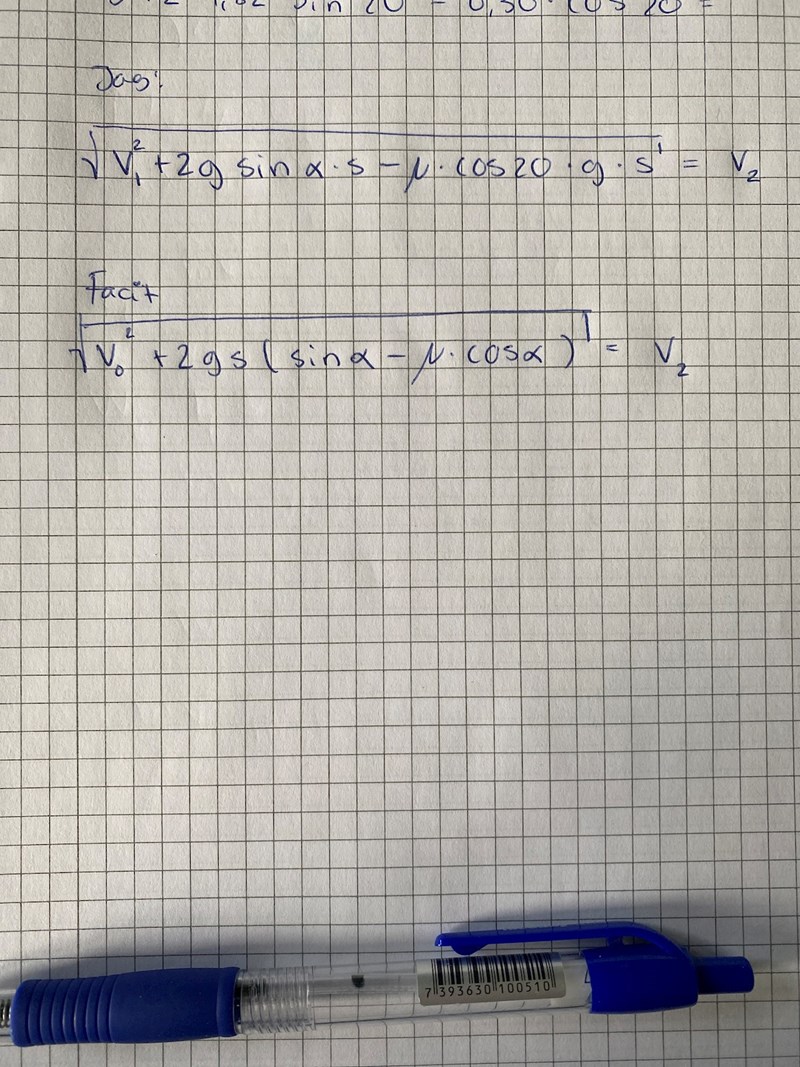 sin 20 - 0,30 · cos 20 =
Jag:
√(v₁² + 2g sin α · s - μ · cos20 · g · s) = v₂
Facit
√(v₀² + 2gs (sinα - μ · cosα)) = v₂
7 393630 100510